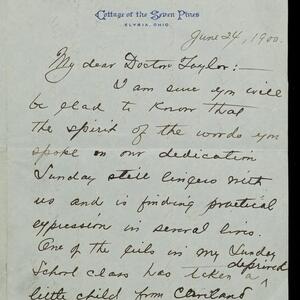 Cottage of the Seven Pines
ELYRIA, OHIO.
June 24, 1900.
My dear Doctor Taylor:—
I am sure you will
be glad to know that
the spirit of the words you
spoke on our dedication
Sunday still lingers with
us and is finding practical
expression in several lives.
One of the girls in my Sunday
School class has taken a deprived
little child from Cleveland